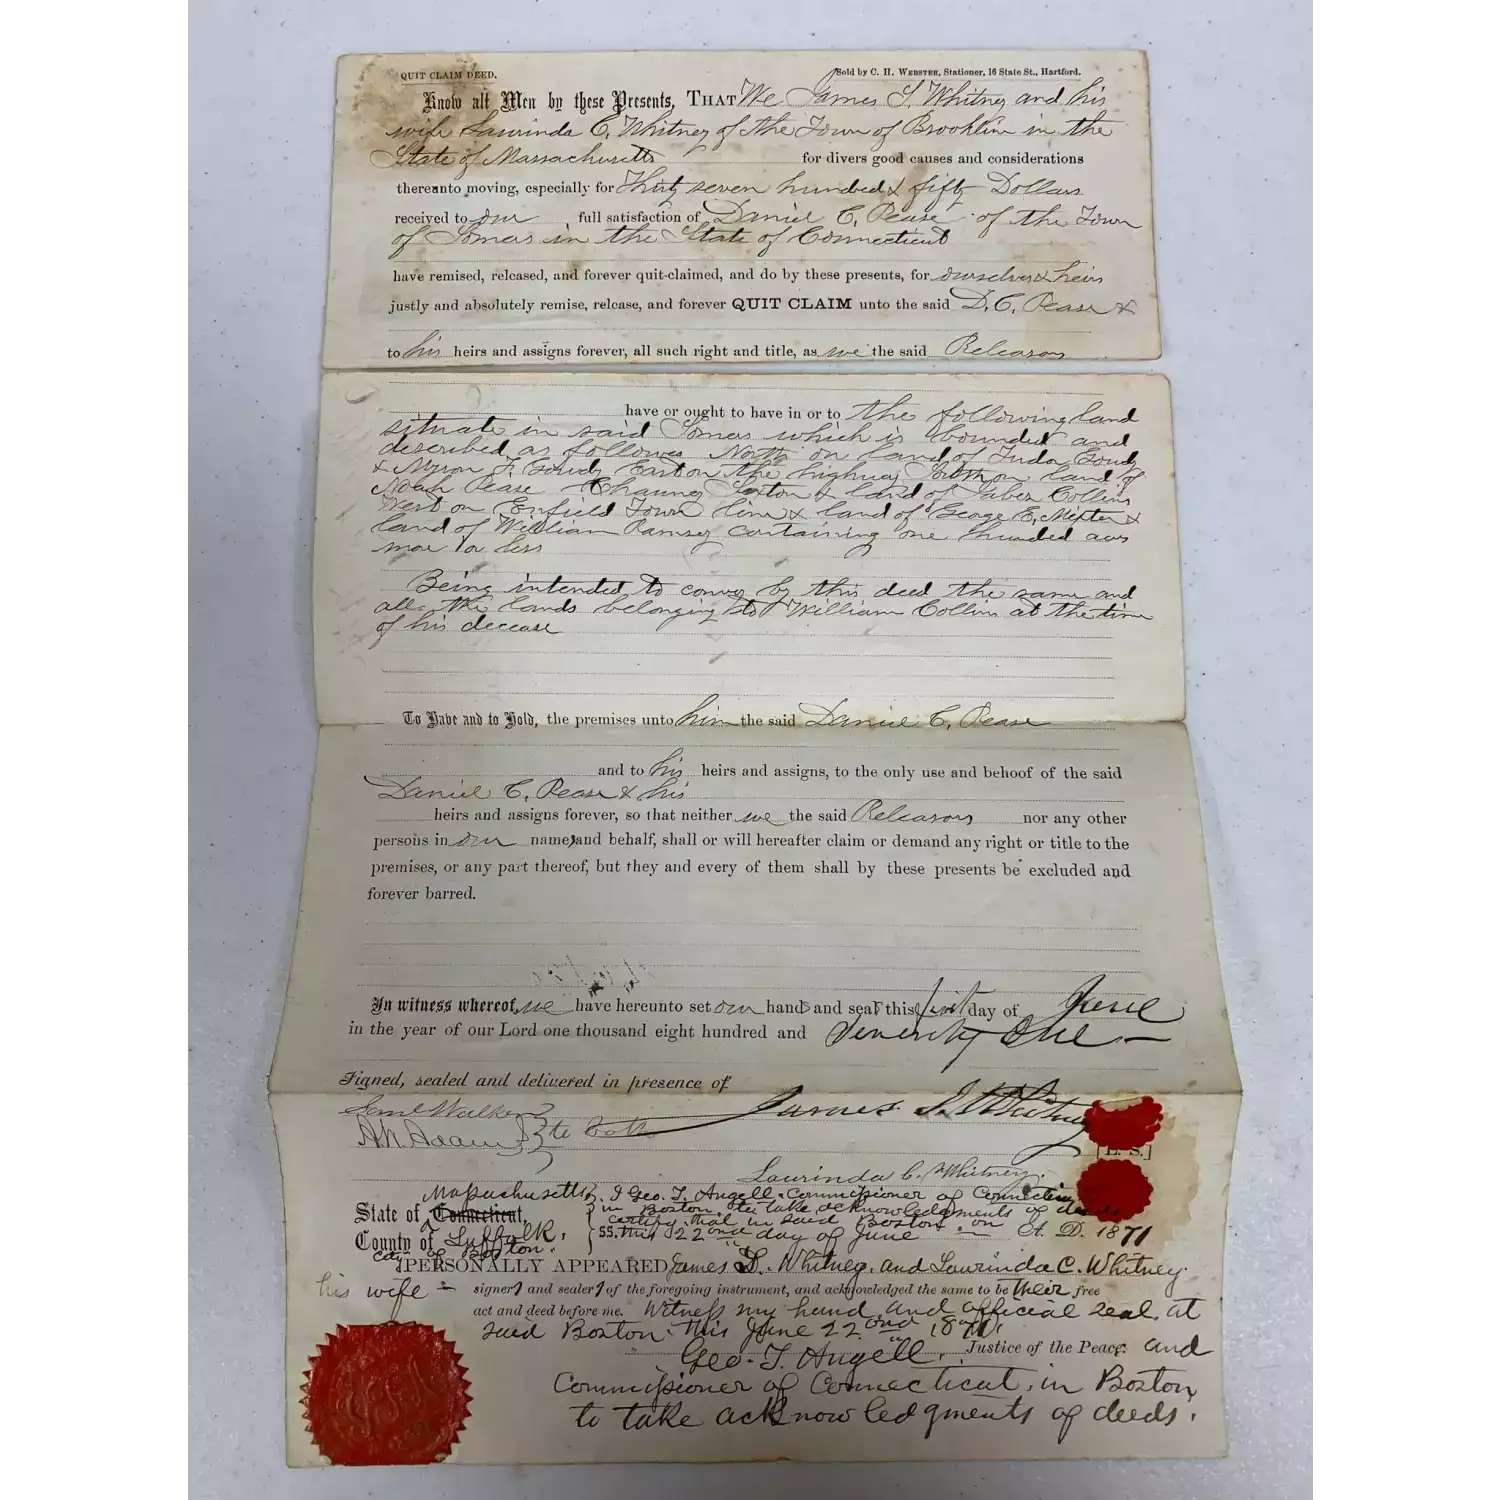 QUIT CLAIM DEED. Sold by C. H. WEBSTER, Stationer, 16 State St., Hartford.
Know all Men by these Presents, THAT We James S. Whitney and his
wife Laurinda C. Whitney of the Town of Brooklin in the
State of Massachusetts for divers good causes and considerations
thereunto moving, especially for Thirty seven hundred & fifty Dollars
received to our full satisfaction of Daniel C. Pease of the Town
of Somers in the State of Connecticut
have remised, released, and forever quit-claimed, and do by these presents, for ourselves & heirs
justly and absolutely remise, release, and forever QUIT CLAIM unto the said D. C. Pease &
to his heirs and assigns forever, all such right and title, as we the said Releasors
have or ought to have in or to the following land
situate in said Somers which is bounded and
described as follows North on land of Tudor Gowdy
& Myron F. Gowdy East on the highway South on land of
Noah Pease Chauncy Sexton & land of Jabez Collins
West on Enfield Town line & land of George E. &
land of William Ramsey containing one hundred acres
more or less
Being intended to convey by this deed the same and
all the lands belonging to William Collins at the time
of his decease
To Have and to Hold, the premises unto him the said Daniel C. Pease
and to his heirs and assigns, to the only use and behoof of the said
Daniel C. Pease & his
heirs and assigns forever, so that neither we the said Releasors nor any other
persons in our names and behalf, shall or will hereafter claim or demand any right or title to the
premises, or any part thereof, but they and every of them shall by these presents be excluded and
forever barred.
In witness whereof, we have hereunto set our hands and seals this first day of June
in the year of our Lord one thousand eight hundred and Seventy One
Signed, sealed and delivered in presence of
Saml Walker James S. Whitney
A N Adams to both [L. S.]
Laurinda C. Whitney.
Massachusetts I Geo. T. Angell Commissioner of Connecticut
State of Connecticut, in Boston, to take acknowledgments of deeds
certify that in said Boston on
County of Suffolk, ss. this 22nd day of June A. D. 1871
City of Boston.
PERSONALLY APPEARED James S. Whitney, and Laurinda C. Whitney
his wife signers and sealers of the foregoing instrument, and acknowledged the same to be their free
act and deed before me. Witness my hand and official seal, at
said Boston this June 22nd 1871.
Geo. T. Angell. Justice of the Peace and
Commissioner of Connecticut, in Boston,
to take acknowledgments of deeds.